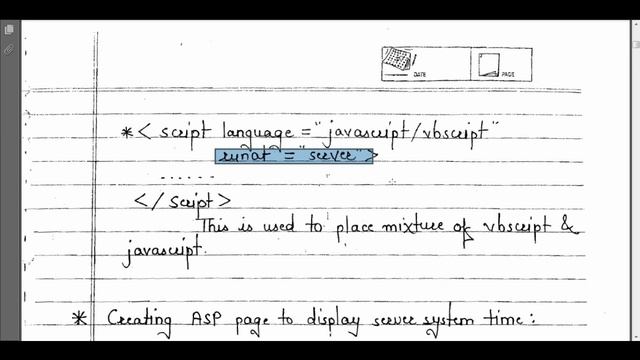 DATE
PAGE
* < script language = "javascript/vbscript"
runat = "server">
......
</ script>
This is used to place mixture of vbscript &
javascript.
* Creating ASP page to display server system time :